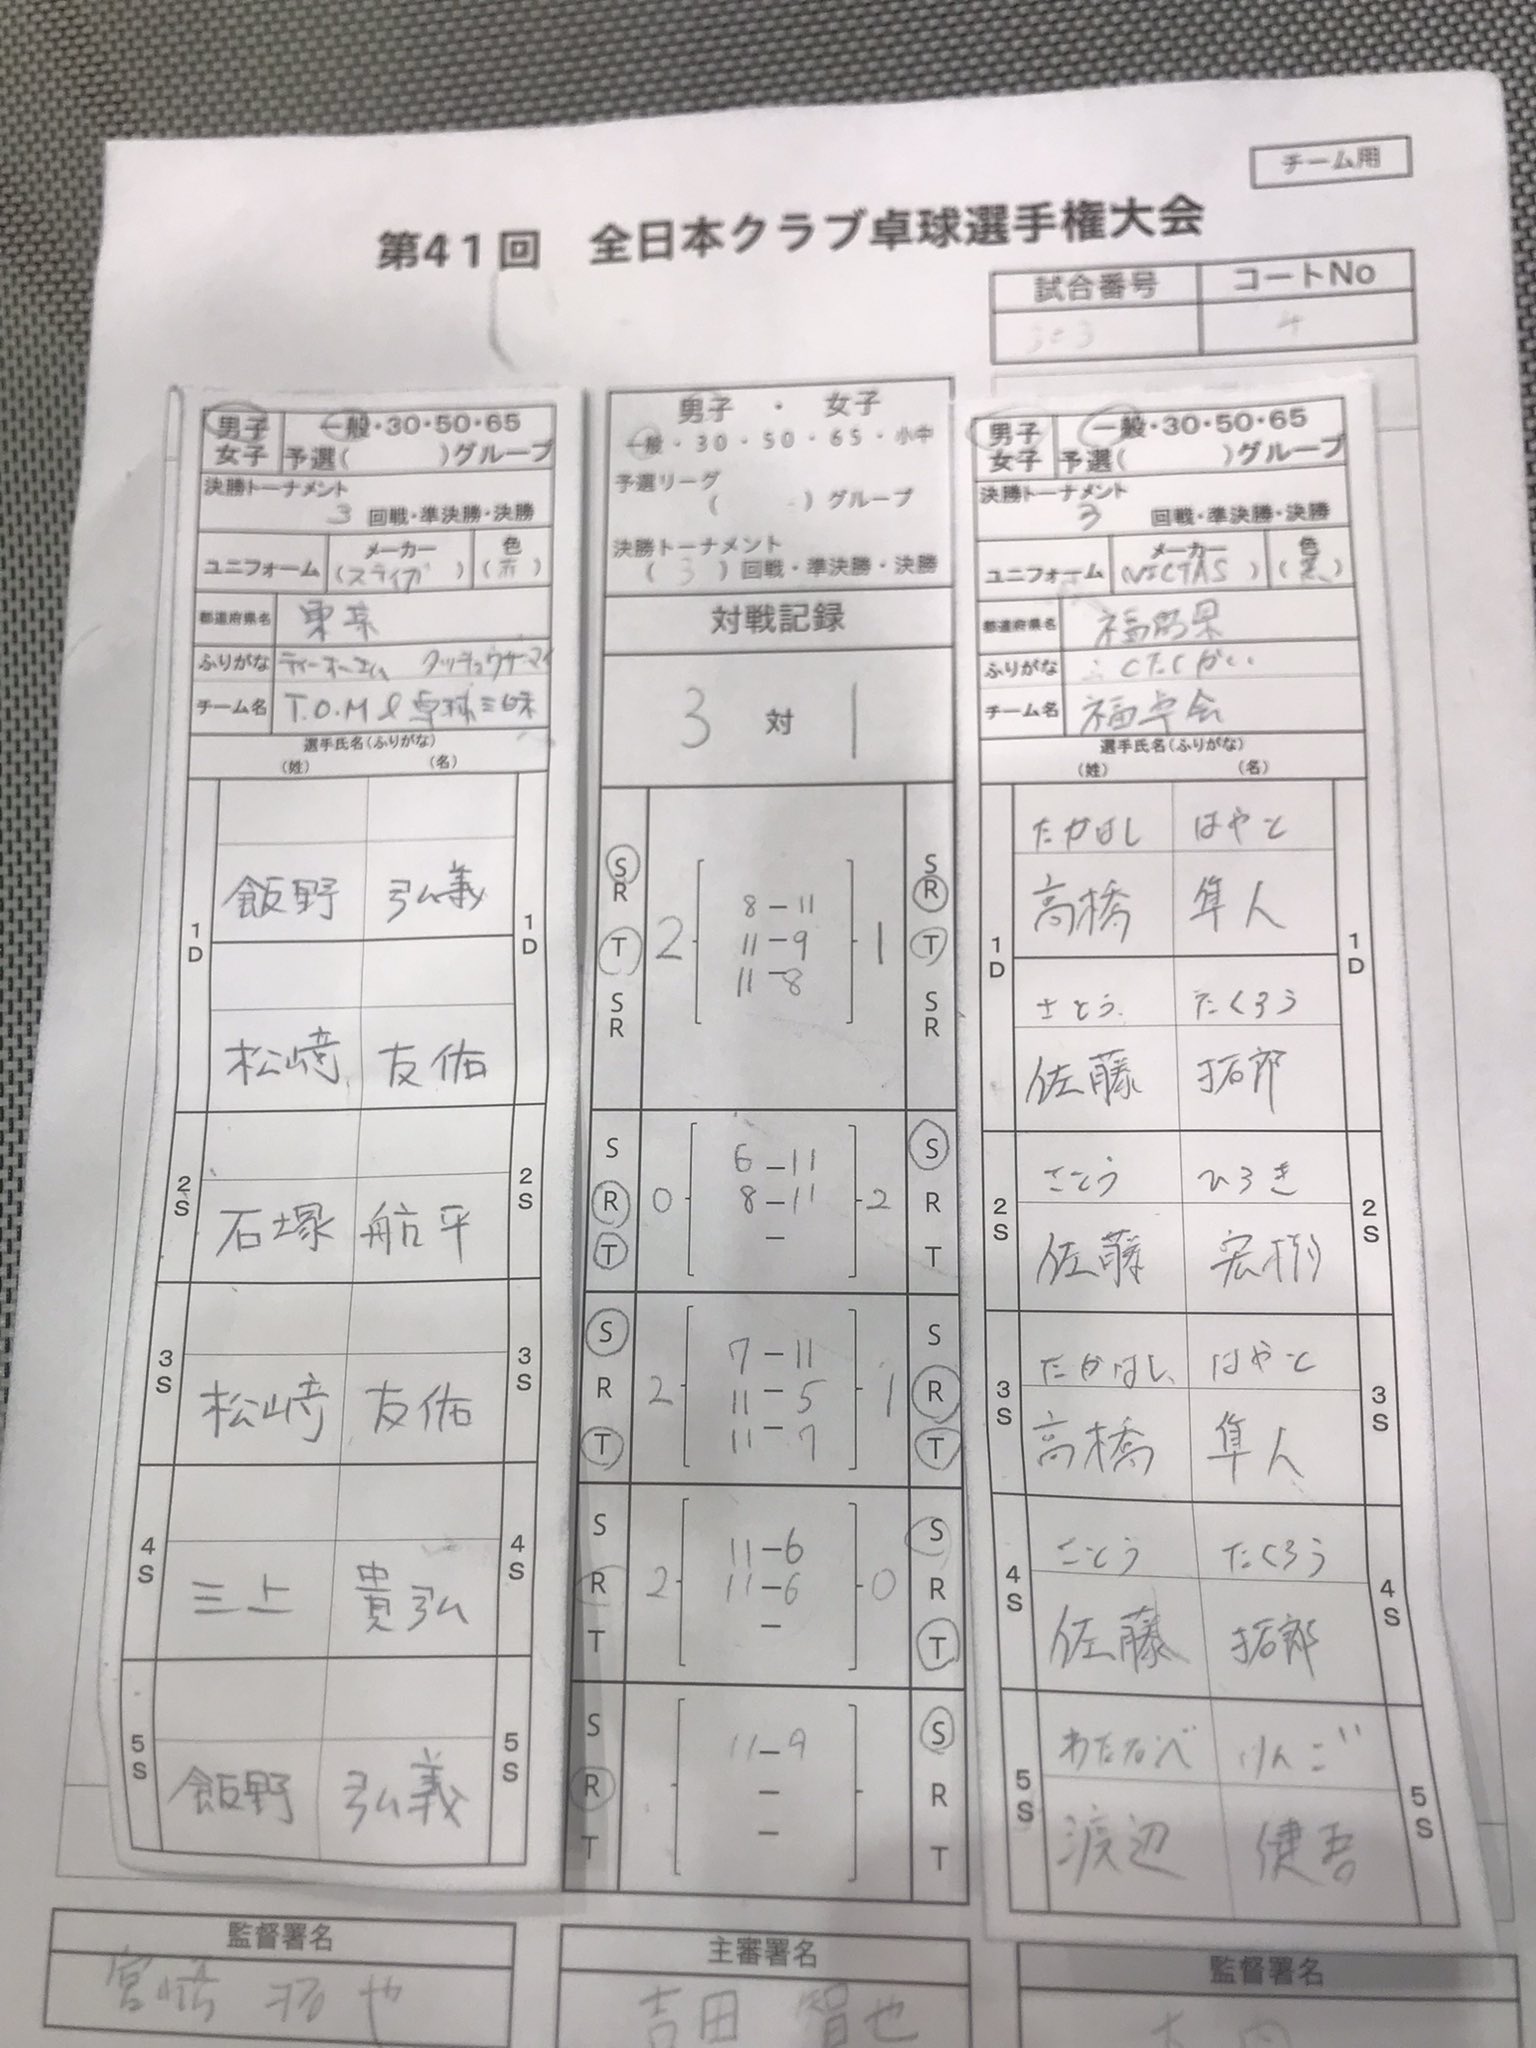 チーム用
第41回 全日本クラブ卓球選手権大会
試合番号 コートNo
4
男子 一般・30・50・65
女子 予選( )グループ
決勝トーナメント
3 回戦・準決勝・決勝
ユニフォーム メーカー 色
(スライブ) (赤)
都道府県名 東京
ふりがな ティーオーエム タッキュウザンマイ
チーム名 T.O.M &卓球三昧
選手氏名(ふりがな)
(姓) (名)
1D 飯野 弘義 1D
松﨑 友佑
2S 石塚 航平 2S
3S 松﨑 友佑 3S
4S 三上 貴弘 4S
5S 飯野 弘義 5S
男子 ・ 女子
一般・30・50・65・小中
予選リーグ
( )グループ
決勝トーナメント
(3)回戦・準決勝・決勝
対戦記録
3 対 1
S 8-11 S
R R
T 2 11-9 1 T
SR 11-8 SR
S 6-11 S
R 0 8-11 2 R
T - T
S 7-11 S
R 2 11-5 1 R
T 11-7 T
S 11-6 S
R 2 11-6 0 R
T - T
S 11-9 S
R - R
T - T
男子 一般・30・50・65
女子 予選( )グループ
決勝トーナメント
3 回戦・準決勝・決勝
ユニフォーム メーカー 色
(VICTAS) (黒)
都道府県名 福岡県
ふりがな ふくたくかい
チーム名 福卓会
選手氏名(ふりがな)
(姓) (名)
たかはし はやと
1D 高橋 隼人 1D
さとう たくろう
佐藤 拓郎
さとう ひろき
2S 佐藤 宏樹 2S
たかはし はやと
3S 高橋 隼人 3S
さとう たくろう
4S 佐藤 拓郎 4S
わたなべ けんご
5S 渡辺 健吾 5S
監督署名 主審署名 監督署名
宮﨑 拓也 吉田 智也